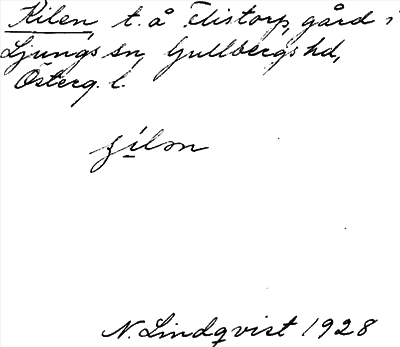 Kilen, t. å Flistorp, gård i
Ljungs sn, Gullbergs hd,
Österg. l.
N. Lindqvist 1928